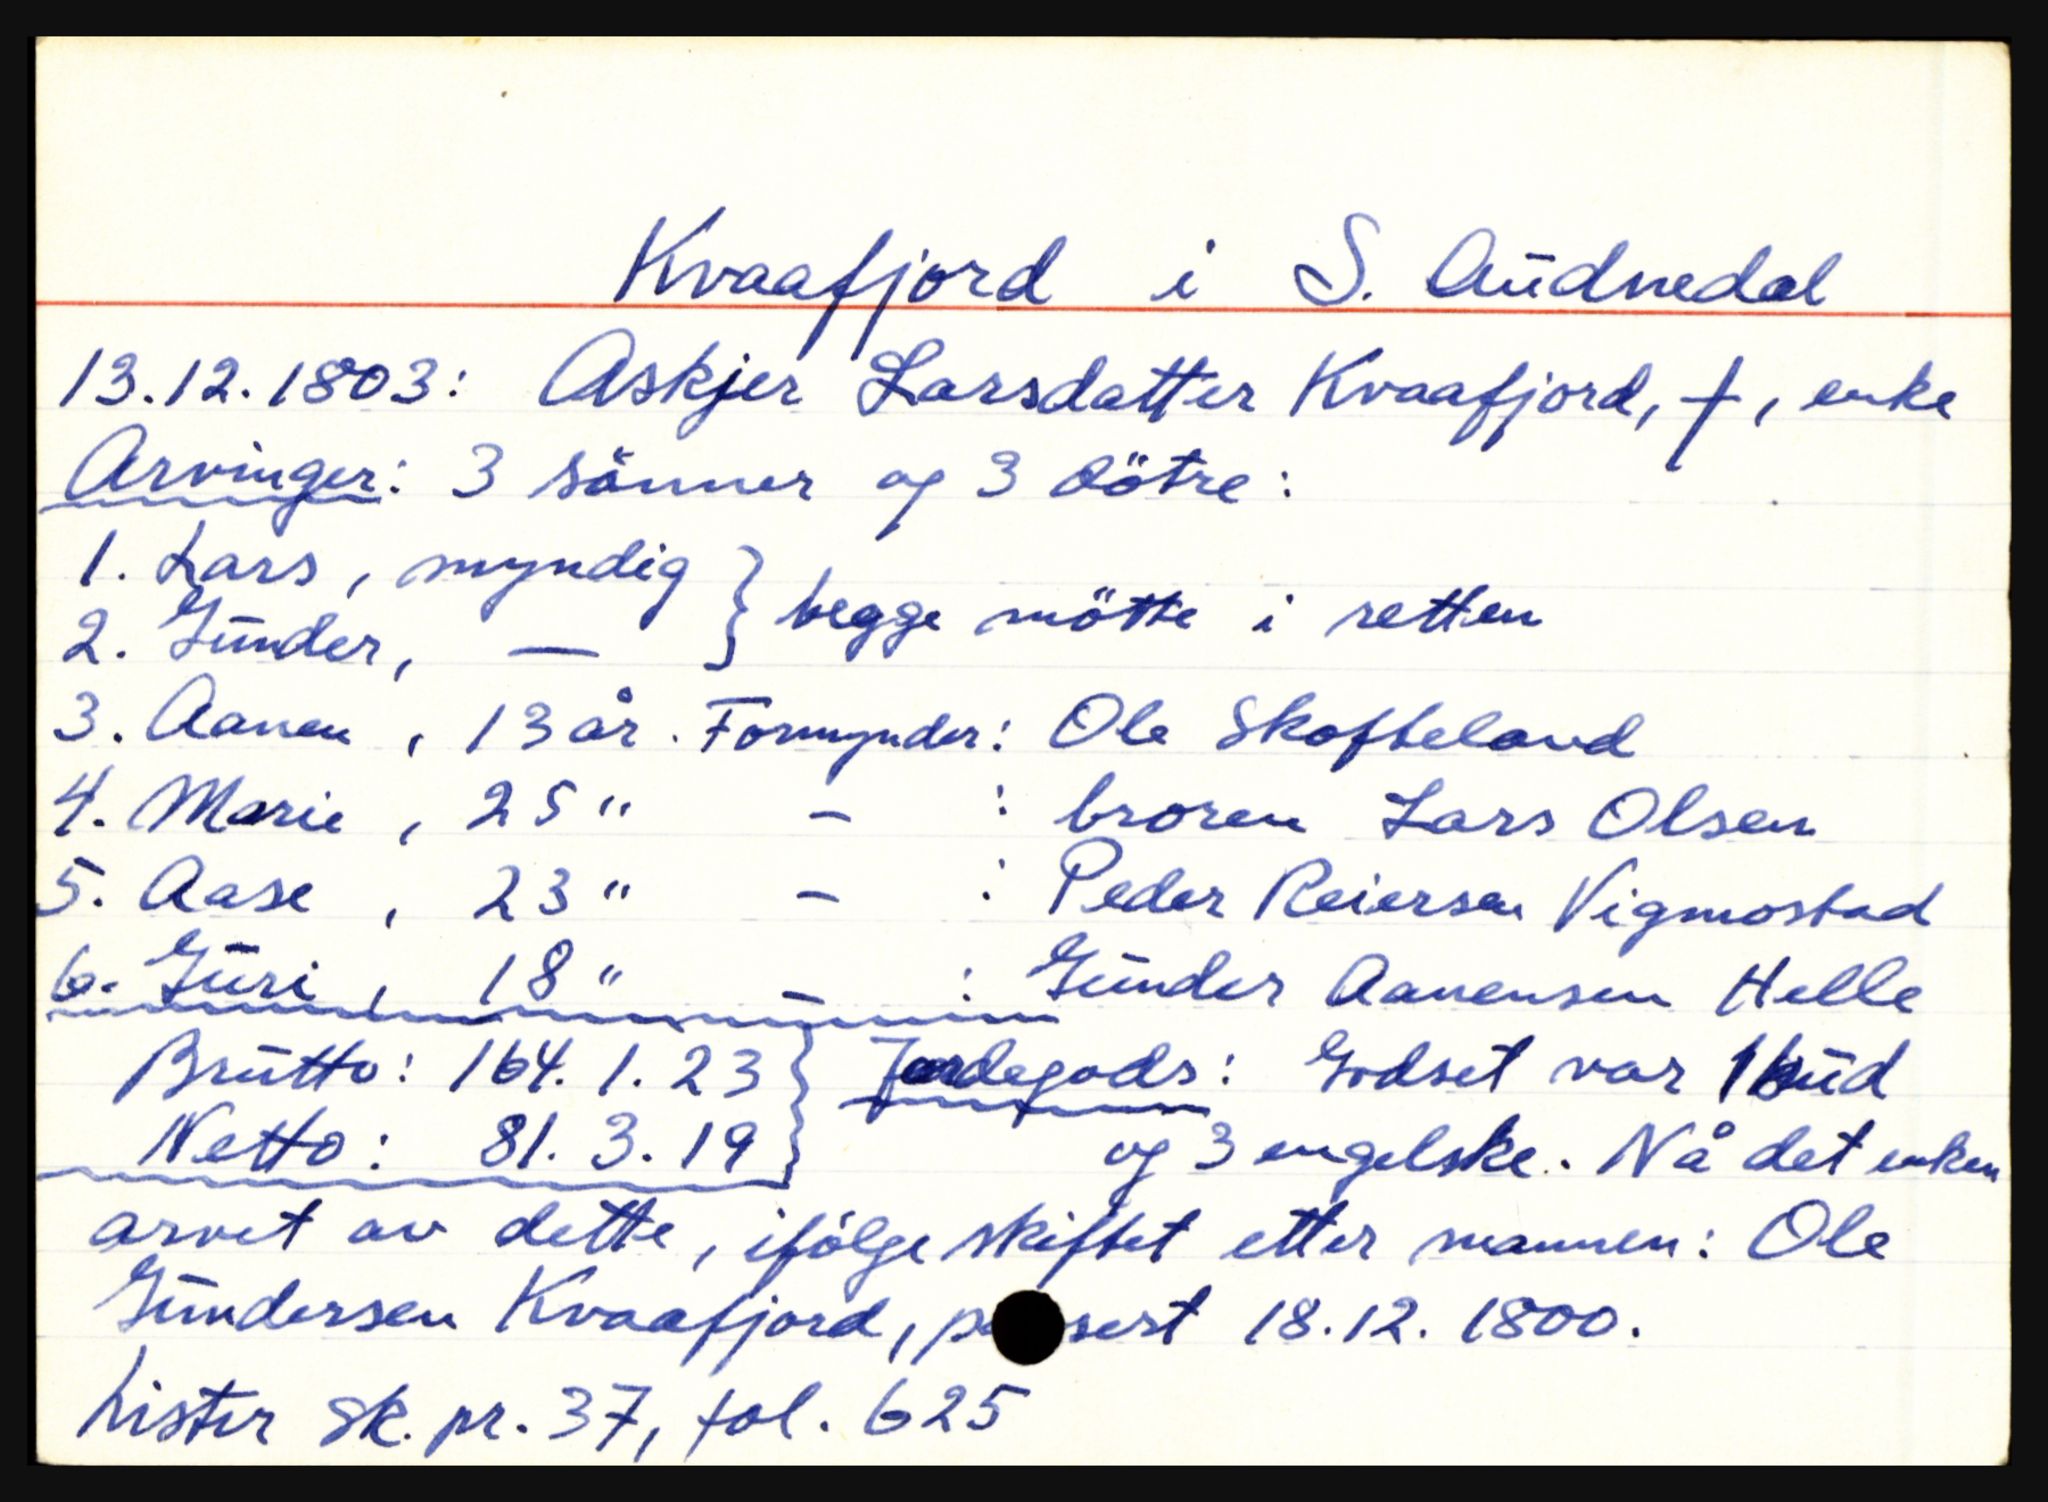 Kvaafjord i S. Audnedal
13.12.1803: Askjer Larsdatter Kvaafjord, †, enke
Arvinger: 3 sönner og 3 dötre:
1. Lars, myndig } begge mötte i retten
2. Gunder, —
3. Aanen, 13 år. Formynder: Ole Skofteland
4. Marie, 25 " - : broren Lars Olsen
5. Aase, 23 " - : Peder Reiersen Vigmostad
6. Guri, 18 " - : Gunder Aanensen Helle
Brutto: 164.1.23 } Jordegods: Godset var 1 hud
Netto: 81.3.19 og 3 engelske. Nå det enken
arvet av dette, ifölge skiftet etter mannen: Ole
Gundersen Kvaafjord, 18.12.1800.
Lister sk. pr. 37, fol. 625